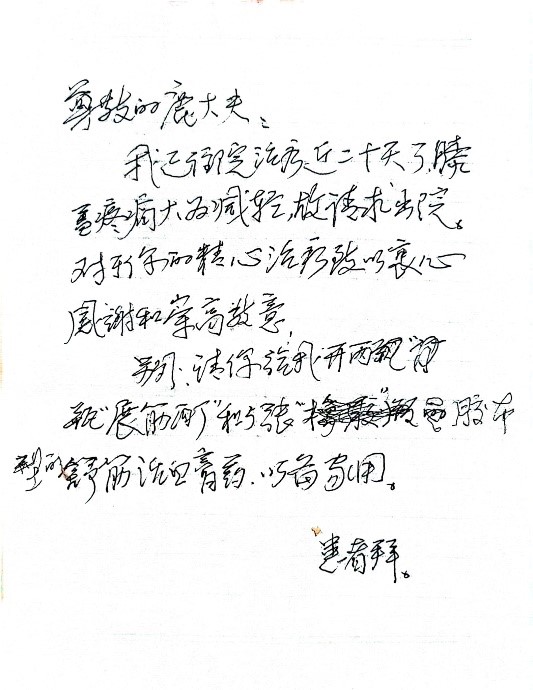 尊敬的鹿大夫：
我已住院治疗近二十天了，膝
盖疼痛大为减轻，故请求出院。
对于你的精心治疗致以衷心
感谢和崇高敬意！
另外，请你给我开两瓶
"展筋酊"和5张 胶布
型的舒筋活血膏药，以备家用。
患者拜。